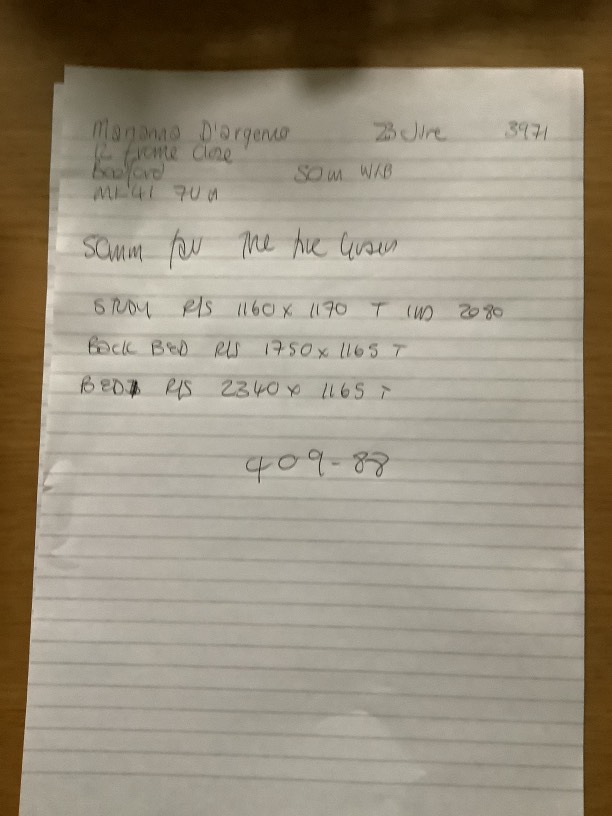 Marianna D'argenio 23 June 3971
12 Frome Close
Bedford 50m W/B
MK41 7UA
50mm for The
STUDY R/S 1160 x 1170 T (W) 2080
BACK BED R/S 1750 x 1165 T
BED 1 R/S 2340 x 1165 T
409-88